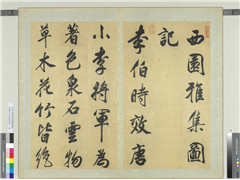 西園雅集圖
記
李伯時效唐
小李將軍為
著色泉石雲物
草木花竹皆絶